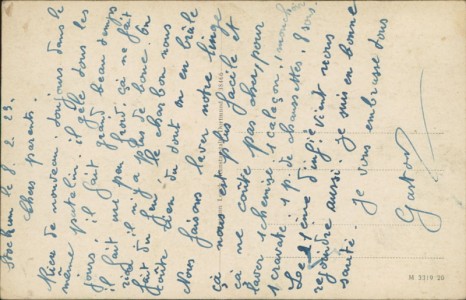 Stockum le 8. 2. 23.
Chers parents.
Rien de nouveau toujours dans le
même patelin. il gèle tous les
jours. il fait grand beau temps
il fait un peu froid. ça ne fait
rien il n'y a plus de boue. on
fait du feu le charbon nous
coûte rien du tout on en brûle
Nous faisons laver notre linge
ça nous est plus facile et
ça ne coûte pas cher, pour
laver 1 chemise 1 caleçon, 1 mouchoir
1 cravate 1 p. de chaussettes: 8 sous.
Le 21ème d'inf. vient nous
rejoindre aussi. je suis en bonne
santé. je vous embrasse tous
Gaston
M 2319/20